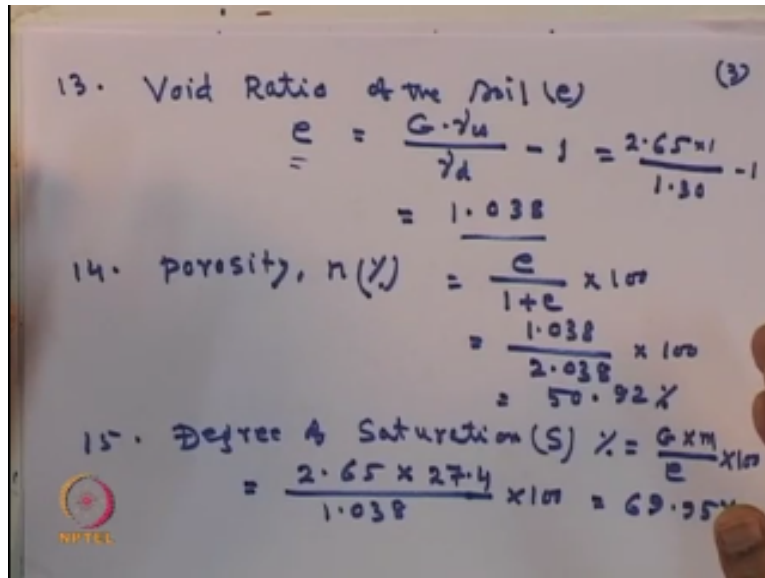 (3)
13. Void Ratio of the soil (e)
e = G.γω / γd - 1 = 2.65 x 1 / 1.30 - 1
= 1.038
14. Porosity, n (%) = e / 1+e x 100
= 1.038 / 2.038 x 100
= 50.92 %
15. Degree of Saturation (S) % = G x m / e x 100
= 2.65 x 27.4 / 1.038 x 100 = 69.95%
NPTEL